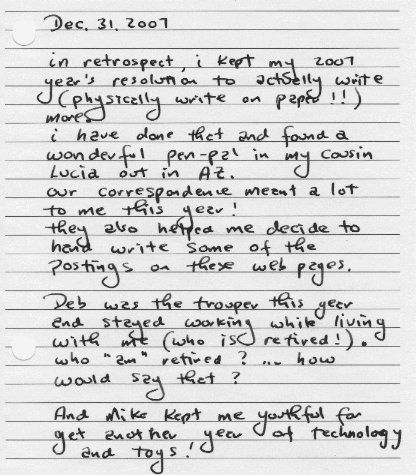 Dec. 31. 2007
in retrospect, i kept my 2007
year's resolution to actually write
(physically write on paper!!)
more.
i have done that and found a
wonderful pen-pal in my cousin
Lucia out in AZ.
our correspondence meant a lot
to me this year!
they also helped me decide to
hand write some of the
postings on these web pages.
Deb was the trouper this year
and stayed working while living
with me (who is retired!).
who "am" retired? ... how
would say that?
And Mike kept me youthful for
yet another year of technology
and toys!